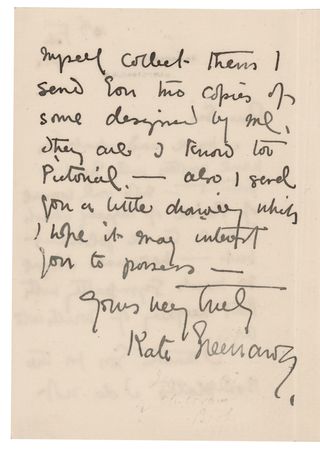 myself collect them I
send you two copies of
some designed by me,
they are I know too
Pictorial. — also I send
you a little drawing which
I hope it may interest
you to possess —
Yours very truly
Kate Greenaway.